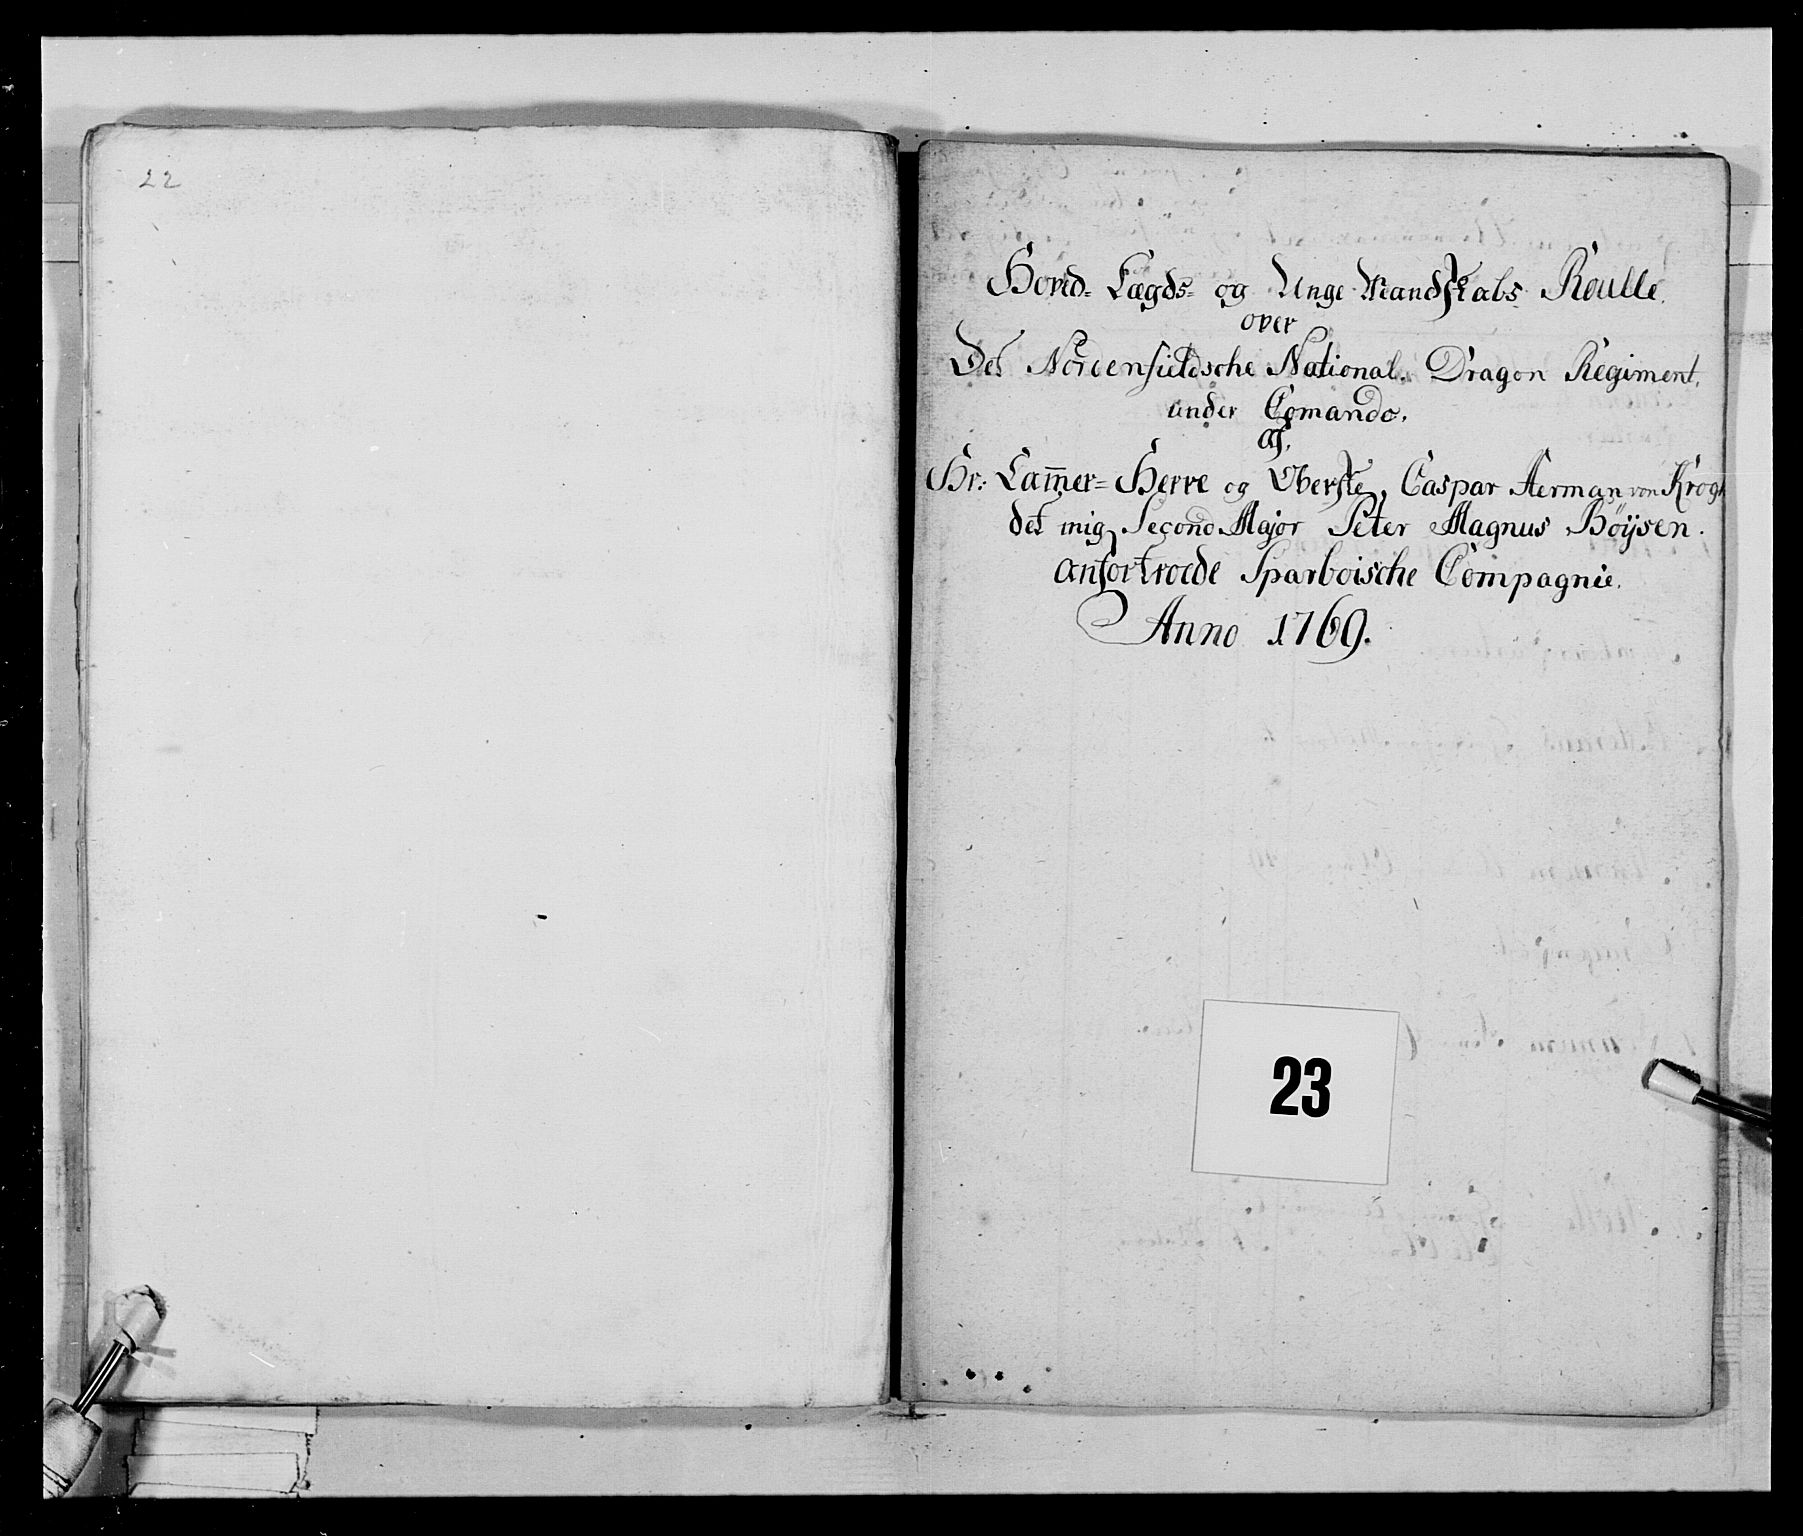 22
Hoved- Lægds- og Unge Mandskabs Roulle.
over
Det Nordenfieldsche National. Dragon Regiment,
under Comando.
af,
Hr: Cam̄er-Herre og Oberste, Caspar Herman von Krogh
det mig Second Major Peter Magnus Böÿsen.
anfortroede Sparboische Compagnie.
Anno 1769.
23